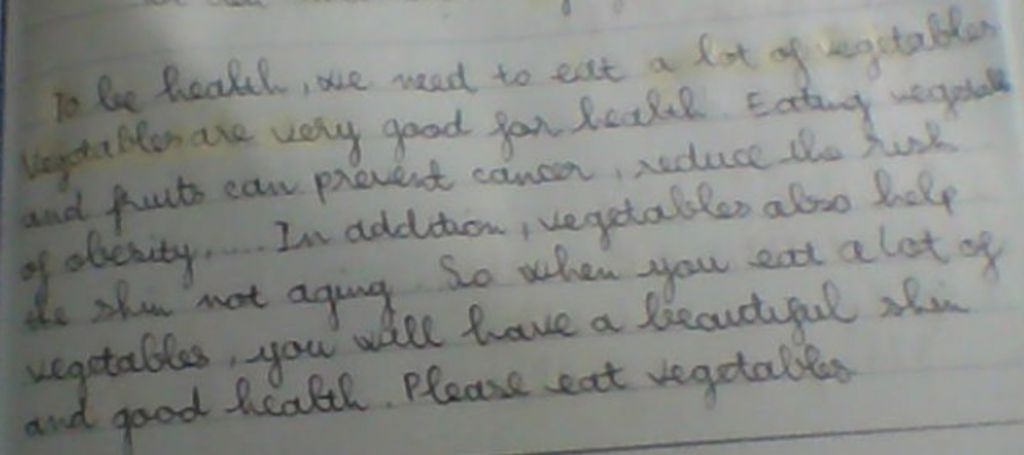 To be health, we need to eat a lot of vegetables
Vegetables are very good for health. Eating vegetable
and fruits can prevent cancer, reduce the risk
of obesity,..... In addition, vegetables also help
the skin not aging. So when you eat a lot of
vegetables, you will have a beautiful skin
and good health. Please eat vegetables